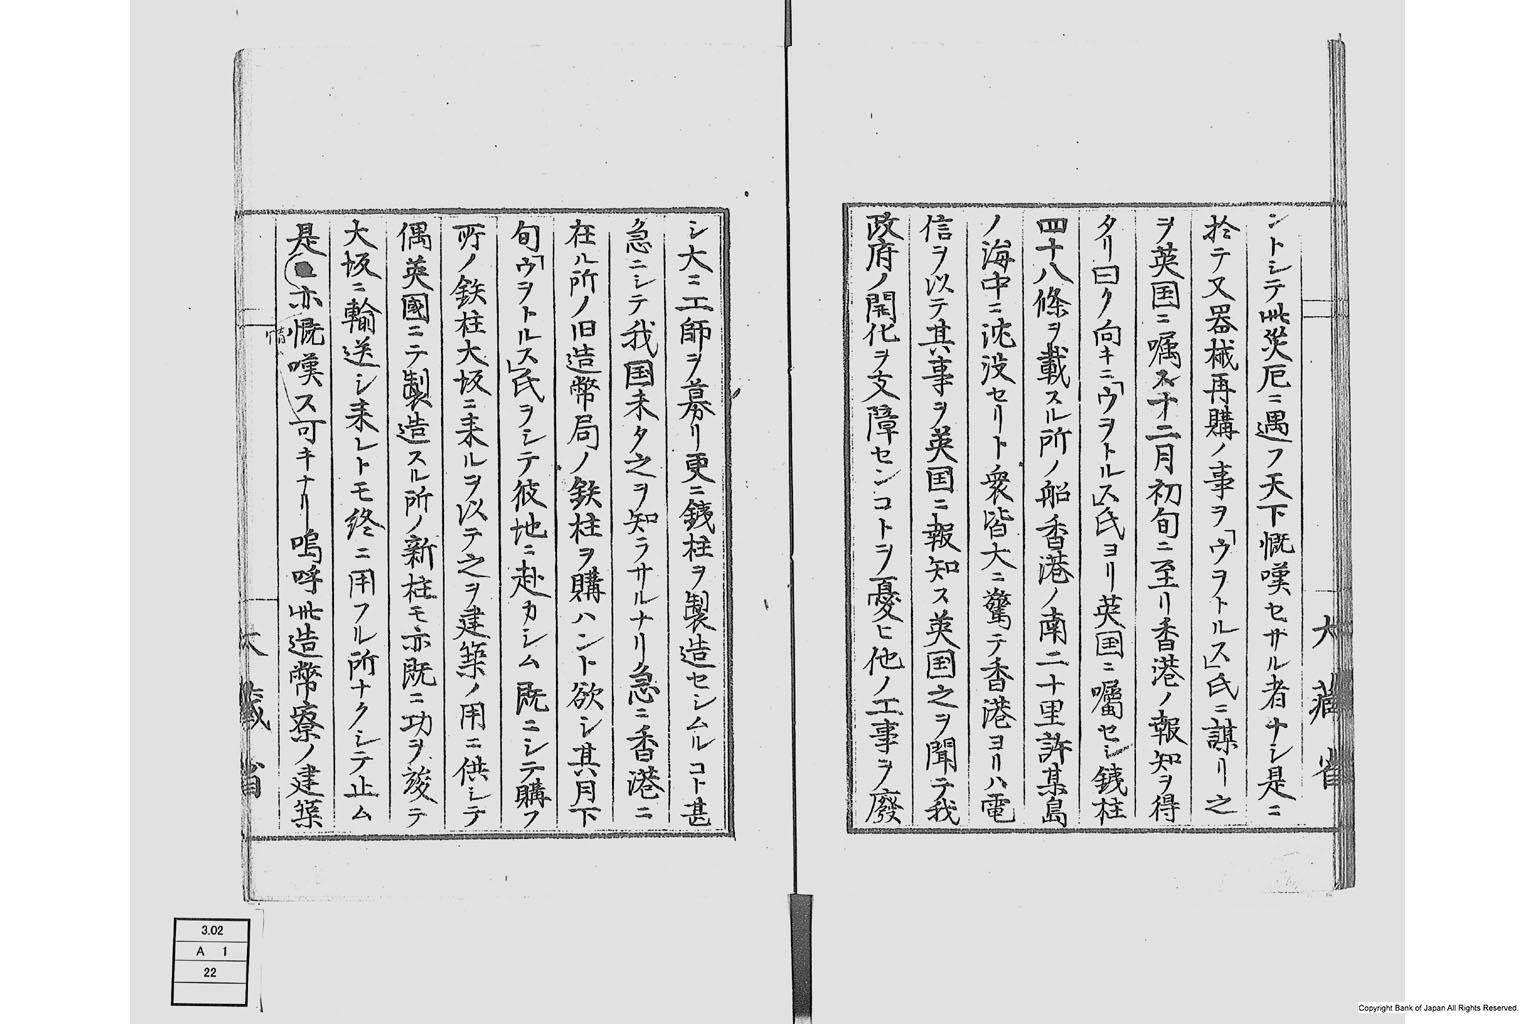 ントシテ此災厄ニ遇フ天下慨嘆セサル者ナシ是ニ
於テ又器械再購ノ事ヲ「ウヲトルス」氏ニ謀リ之
ヲ英国ニ嘱ス十二月初旬ニ至リ香港ノ報知ヲ得
タリ曰ク向キニ「ウヲトルス」氏ヨリ英国ニ囑セシ銕柱
四十八條ヲ載スル所ノ船香港ノ南二十里許某島
ノ海中ニ沈没セリト衆皆大ニ驚テ香港ヨリハ電
信ヲ以テ其事ヲ英国ニ報知ス英国之ヲ聞テ我
政府ノ開化ヲ支障センコトヲ憂ヒ他ノ工事ヲ廢
大藏省
シ大ニ工師ヲ募リ更ニ銕柱ヲ製造セシムルコト甚
タ急ニシテ我国未タ之ヲ知ラサルナリ急ニ香港ニ
在ル所ノ旧造幣局ノ鉄柱ヲ購ハント欲シ其月下
旬「ウヲトルス」氏ヲシテ彼地ニ赴カシム既ニシテ購フ
所ノ鉄柱大坂ニ来ルヲ以テ之ヲ建築ノ用ニ供シテ
偶英國ニテ製造スル所ノ新柱モ亦既ニ功ヲ竣テ
大坂ニ輸送シ来レトモ終ニ用フル所ナクシテ止ム
是亦慨嘆ス可キナリ嗚呼此造幣寮ノ建築
大藏省
3.02
A 1
22
Copyright Bank of Japan All Rights Reserved.